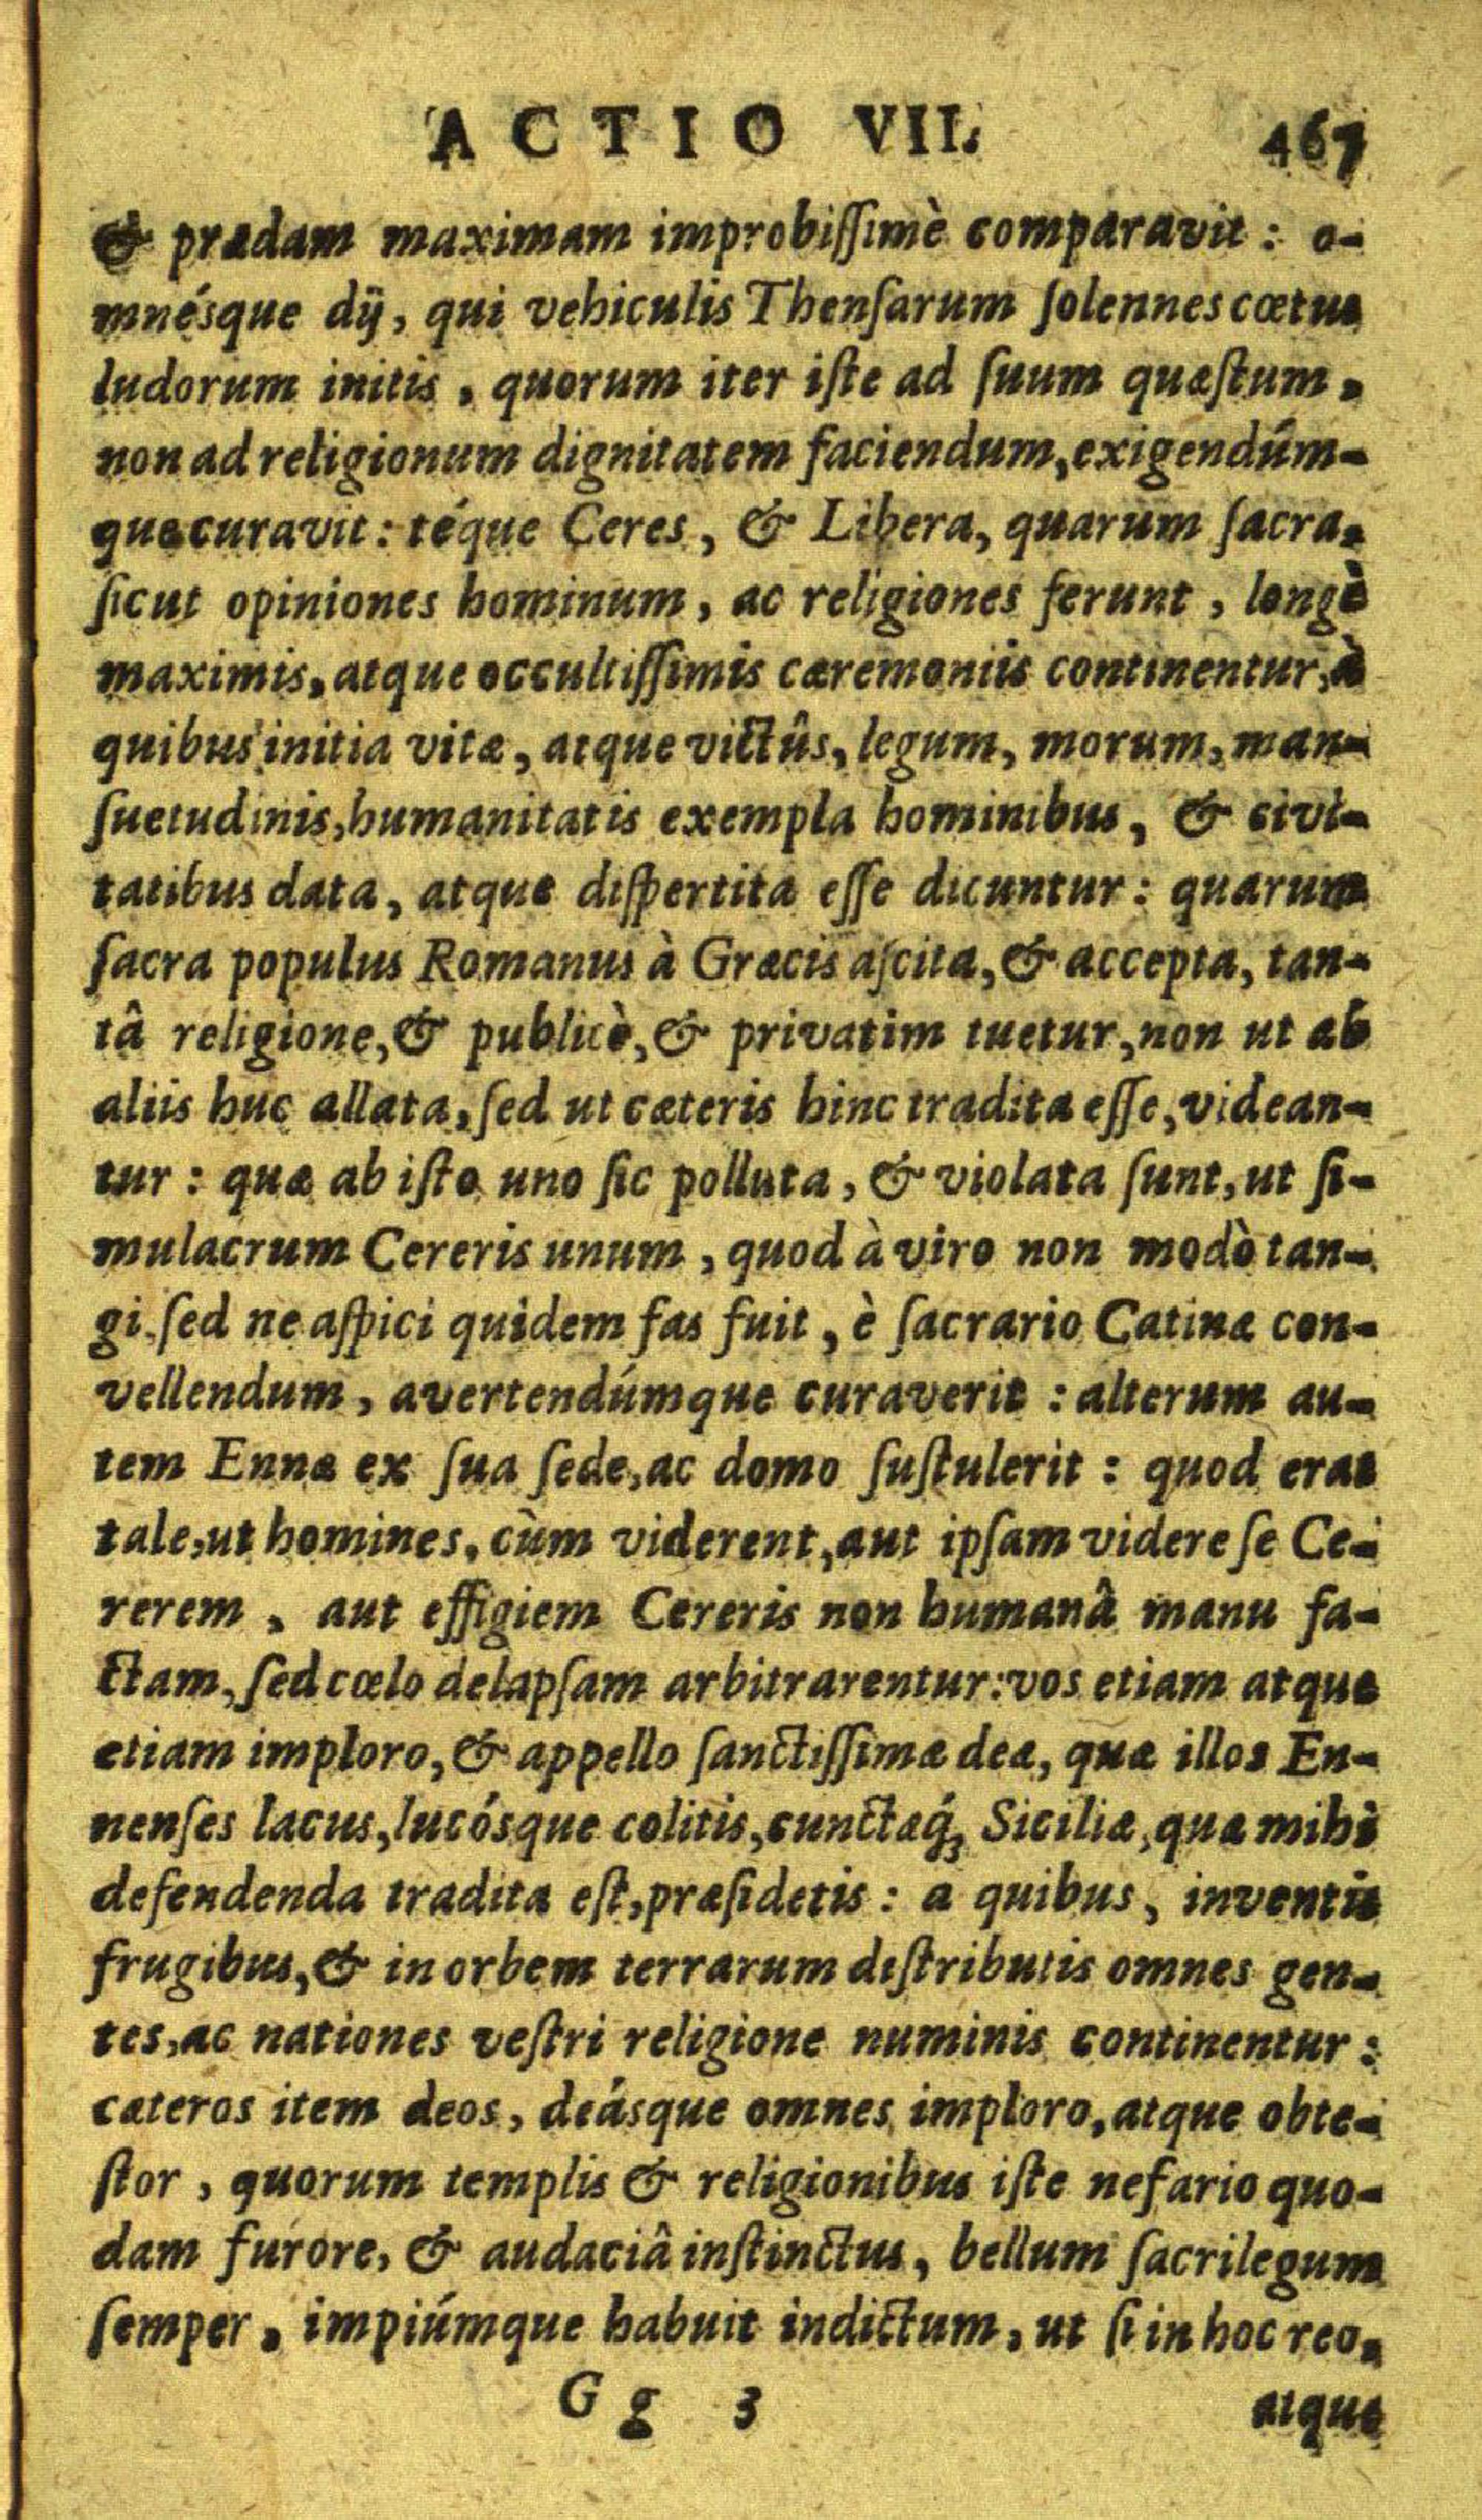 ACTIO VII. 467
& prædam maximam improbiſſimè comparavit : o-
mnésque dij, qui vehiculis Thenſarum ſolennes cœtus
ludorum initis, quorum iter iſte ad ſuum quæſtum,
non ad religionum dignitatem faciendum, exigendúm-
que curavit : téque Ceres, & Libera, quarum ſacra,
ſicut opiniones hominum, ac religiones ferunt, longè
maximis, atque occultiſſimis cæremoniis continentur, à
quibus initia vitæ, atque victûs, legum, morum, man-
ſuetudinis, humanitatis exempla hominibus, & civi-
tatibus data, atque diſpertita eſſe dicuntur : quarum
ſacra populus Romanus à Græcis aſcita, & accepta, tan-
tâ religione, & publicè, & privatim tuetur, non ut ab
aliis huc allata, ſed ut cæteris hinc tradita eſſe, videan-
tur : quæ ab iſto uno ſic polluta, & violata ſunt, ut ſi-
mulacrum Cereris unum, quod à viro non modò tan-
gi, ſed ne aſpici quidem fas fuit, è ſacrario Catinæ con-
vellendum, avertendúmque curaverit : alterum au-
tem Ennæ ex ſua ſede, ac domo ſuſtulerit : quod erat
tale, ut homines, cùm viderent, aut ipſam videre ſe Ce-
rerem, aut effigiem Cereris non humanâ manu fa-
ctam, ſed cœlo delapſam arbitrarentur : vos etiam atque
etiam imploro, & appello ſanctiſſimæ deæ, quæ illos En-
nenſes lacus, lucósque colitis, cunctæq́; Siciliæ, quæ mihi
defendenda tradita eſt, præſidetis : a quibus, inventis
frugibus, & in orbem terrarum diſtributis omnes gen-
tes, ac nationes veſtri religione numinis continentur :
cæteros item deos, deásque omnes imploro, atque obte-
ſtor, quorum templis & religionibus iſte nefario quo-
dam furore, & audaciâ inſtinctus, bellum ſacrilegum
ſemper, impiúmque habuit indictum, ut ſi in hoc reo,
Gg 3 atque